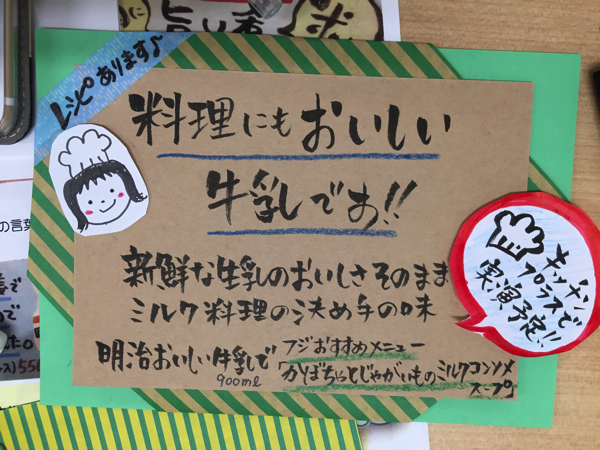 レシピあります♪
料理にもおいしい
牛乳でお!!
新鮮な生乳のおいしさそのまま
ミルク料理の決め手の味
明治おいしい牛乳で
900ml
フジおすすめメニュー
「かぼちゃとじゃがいものミルクコンソメ
スープ」
キッチン
プラスで
実演予定!!
の言葉